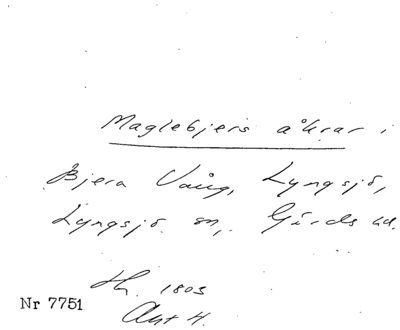 Maglebjers åkrar i
Bjera Vång, Lyngsjö,
Lyngsjö sn, Gärds hd.
Hh. 1803
Akt 4.
Nr 7751